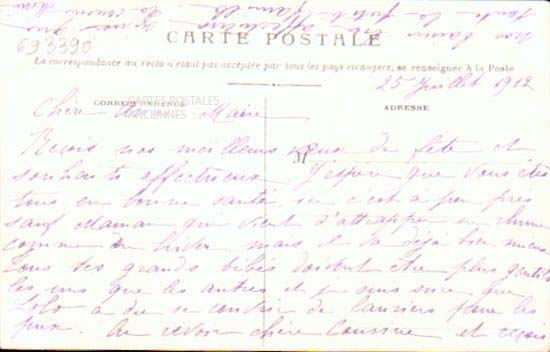 toute la petite famille
693390
CARTE POSTALE
La correspondance au recto n'étant pas acceptée par tous les pays étrangers, se renseigner à la Poste
25 Juillet 1912
CORRESPONDANCE
ADRESSE
CARTES POSTALES
ANCIENNES
Chère Marie
M
Reçois nos meilleurs vœux de fête et
souhaits affectueux J'espère que vous êtes
tous en bonne santé ici c'est à peu près
sauf Maman qui vient d'attrapper un rhume
comme en hiver mais il va déjà bien mieux
Tous tes grands bébés doivent être plus gentils
les uns que les autres et je suis sûre que
Lolo a dû se couvrir de lauriers pour les
prix. Au revoir chère Cousine et reçois